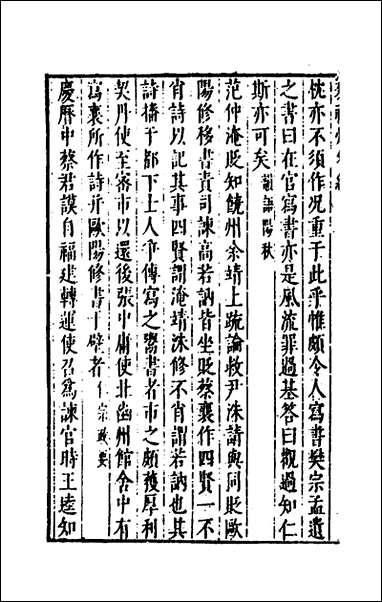 忱亦不須作况重于此乎惟頗令人寫書樊宗孟遺
之書曰在官寫書亦是風流罪過基答曰觀過知仁
斯亦可矣 韻語陽秋
范仲淹貶知饒州余靖上疏論救尹洙請與同貶歐
陽修移書責司諫高若訥皆坐貶蔡襄作四賢一不
肖詩以記其事四賢謂淹靖洙修不肖謂若訥也其
詩播于都下士人爭傳寫之鬻書者市之頗獲厚利
契丹使至密市以還後張中庸使北幽州館舍中有
寫襄所作詩并歐陽修書于壁者 仁宗政要
慶曆中蔡君謨自福建轉運使召爲諫官時王逵知